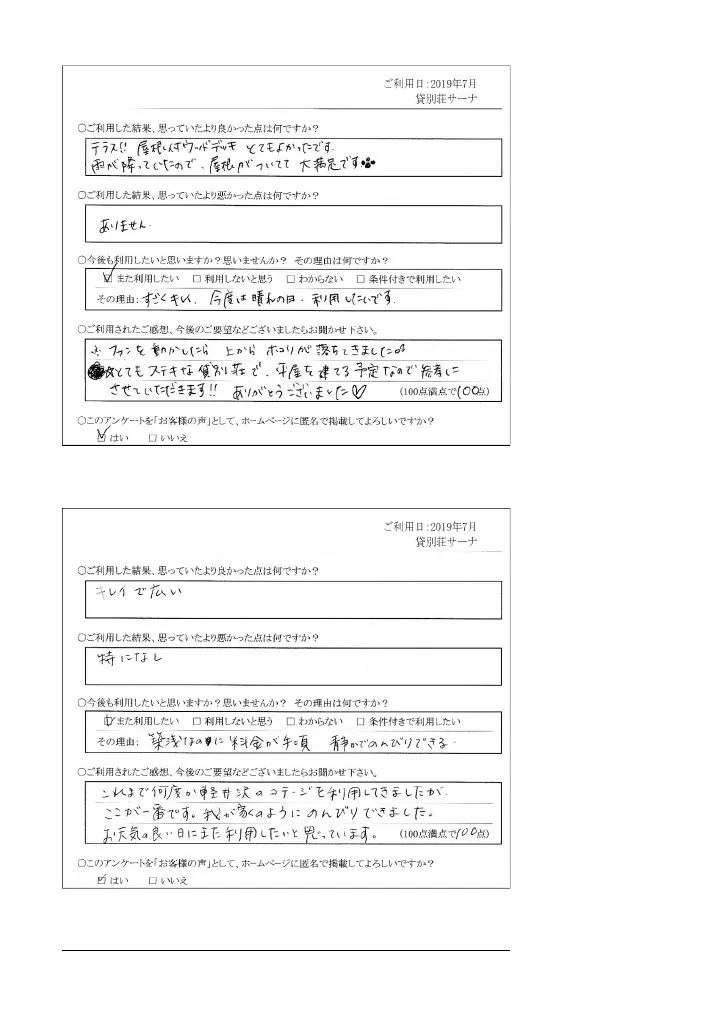 ご利用日:2019年7月
貸別荘サーナ
○ご利用した結果、思っていたより良かった点は何ですか?
テラス!! 屋根付ウッドデッキ とてもよかったです。
雨が降っていたので、屋根がついてて 大満足です
○ご利用した結果、思っていたより悪かった点は何ですか?
ありません。
○今後も利用したいと思いますか?思いませんか? その理由は何ですか?
☑また利用したい □利用しないと思う □わからない □条件付きで利用したい
その理由: すごくキレイ、今度は晴れの日、利用したいです。
○ご利用されたご感想、今後のご要望などございましたらお聞かせ下さい。
※ ファンを動かしたら 上から ホコリが落ちてきました
とてもステキな貸別荘で、平屋を建てる予定なので参考に
させていただきます!! ありがとうございました♡ (100点満点で100点)
○このアンケートを「お客様の声」として、ホームページに匿名で掲載してよろしいですか?
☑はい □いいえ
ご利用日:2019年7月
貸別荘サーナ
○ご利用した結果、思っていたより良かった点は何ですか?
キレイで広い
○ご利用した結果、思っていたより悪かった点は何ですか?
特になし
○今後も利用したいと思いますか?思いませんか? その理由は何ですか?
☑また利用したい □利用しないと思う □わからない □条件付きで利用したい
その理由: 築浅なのに料金が手頃 静かでのんびりできる。
○ご利用されたご感想、今後のご要望などございましたらお聞かせ下さい。
これまで何度か軽井沢のコテージを利用してきましたが、
ここが一番です。我が家のようにのんびりできました。
お天気の良い日にまた利用したいと思っています。 (100点満点で100点)
○このアンケートを「お客様の声」として、ホームページに匿名で掲載してよろしいですか?
☑はい □いいえ